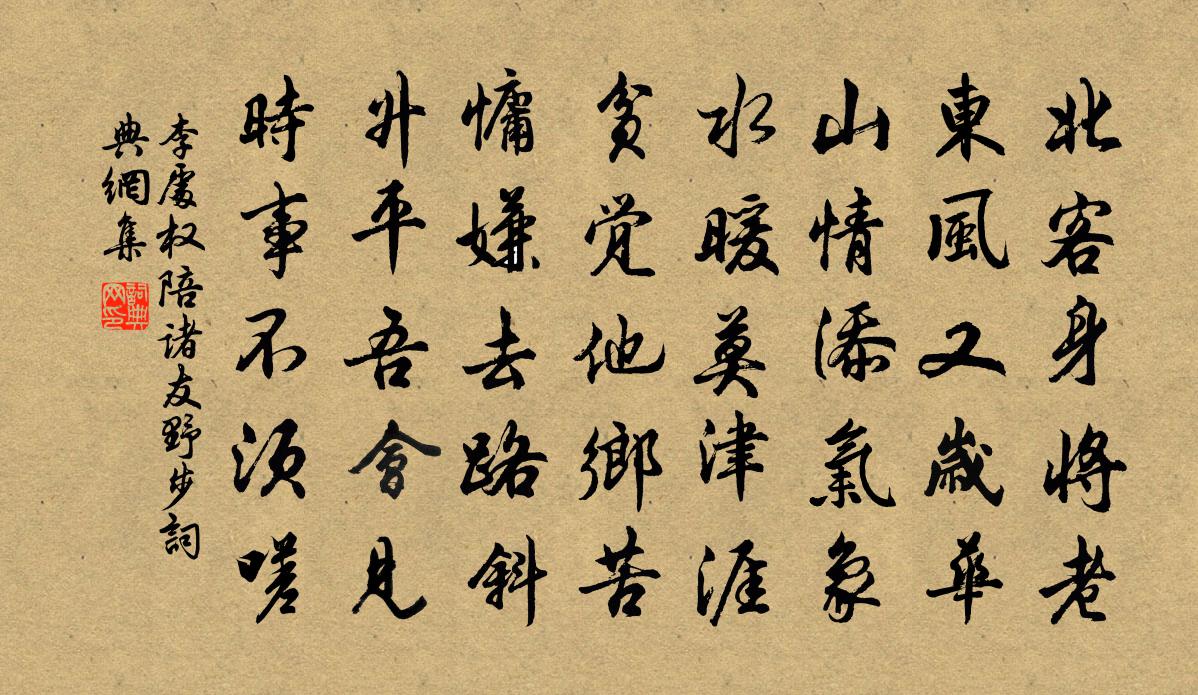 北客身將老
東風又歲華
山情添氣象
水暖莫津涯
貧覺他鄉苦
慵嫌去路斜
升平吾會見
時事不須嗟
李處权陪诸友野步詞
典網集
詞典
网印